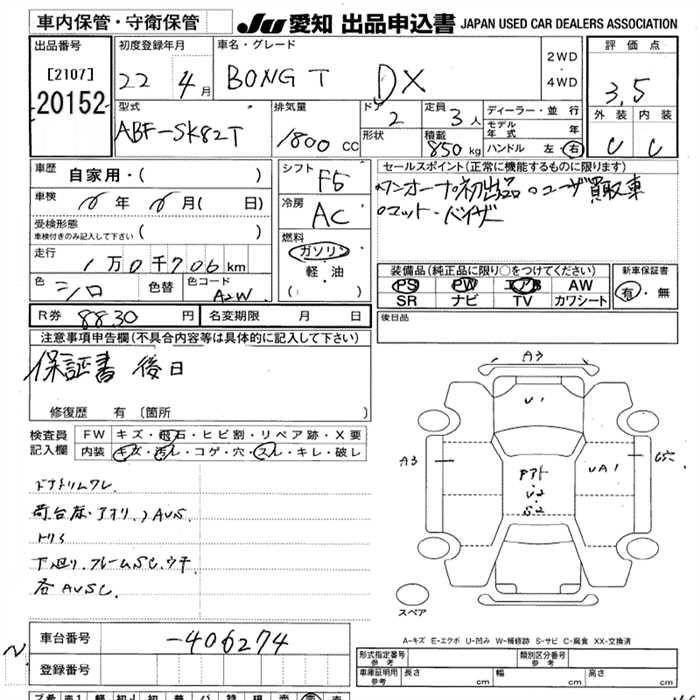 車内保管・守衛保管 JU 愛知 出品申込書 JAPAN USED CAR DEALERS ASSOCIATION
出品番号 初度登録年月 車名・グレード 2WD・4WD 評価点
[2107] 22年 4月 BONGO T DX 3.5
20152
型式 排気量 ドア 2 定員 3人 ディーラー・並行 外装 内装
ABF-SK82T 1800 CC 形状 積載 850kg モデル年式 年 C C
ハンドル 左 右
車歴 自家用・( ) シフト F5 セールスポイント(正常に機能するものに限ります)
車検 年 月( 日) 冷房 AC ワンオーナー初出品 ユーザー買取車
受検形態 車検付きのみ記入して下さい ( ) マット・バイザー
走行 1万0千706km 燃料 ガソリン・軽・油 ( )
装備品(純正品に限り○をつけてください) 新車保証書
色 シロ 色替 色コード A2W PS PW エアB AW 有・無
SR ナビ TV カワシート
R券 8830円 名変期限 月 日 後日品
注意事項申告欄(不具合内容等は具体的に記入して下さい)
保証書 後日
修復歴 有 〔箇所 〕
検査員記入欄 FW キズ・飛石・ヒビ割・リペア跡・X要
内装 キズ・汚レ・コゲ・穴・スレ・キレ・破レ
ドアトリムワレ
荷台床・アオリノAUS.
トリミ
下廻り.フレームSC.ウチ
各AUSC.
A3
U1
A3
UA1
U2
S2
スペア
A-キズ E-エクボ U-凹み W-補修跡 S-サビ C-腐食 XX-交換済
車台番号 -406274
登録番号
形式指定番号 参考 類別区分番号 参考
車庫証明用 参考 長さ cm 幅 cm 高さ cm